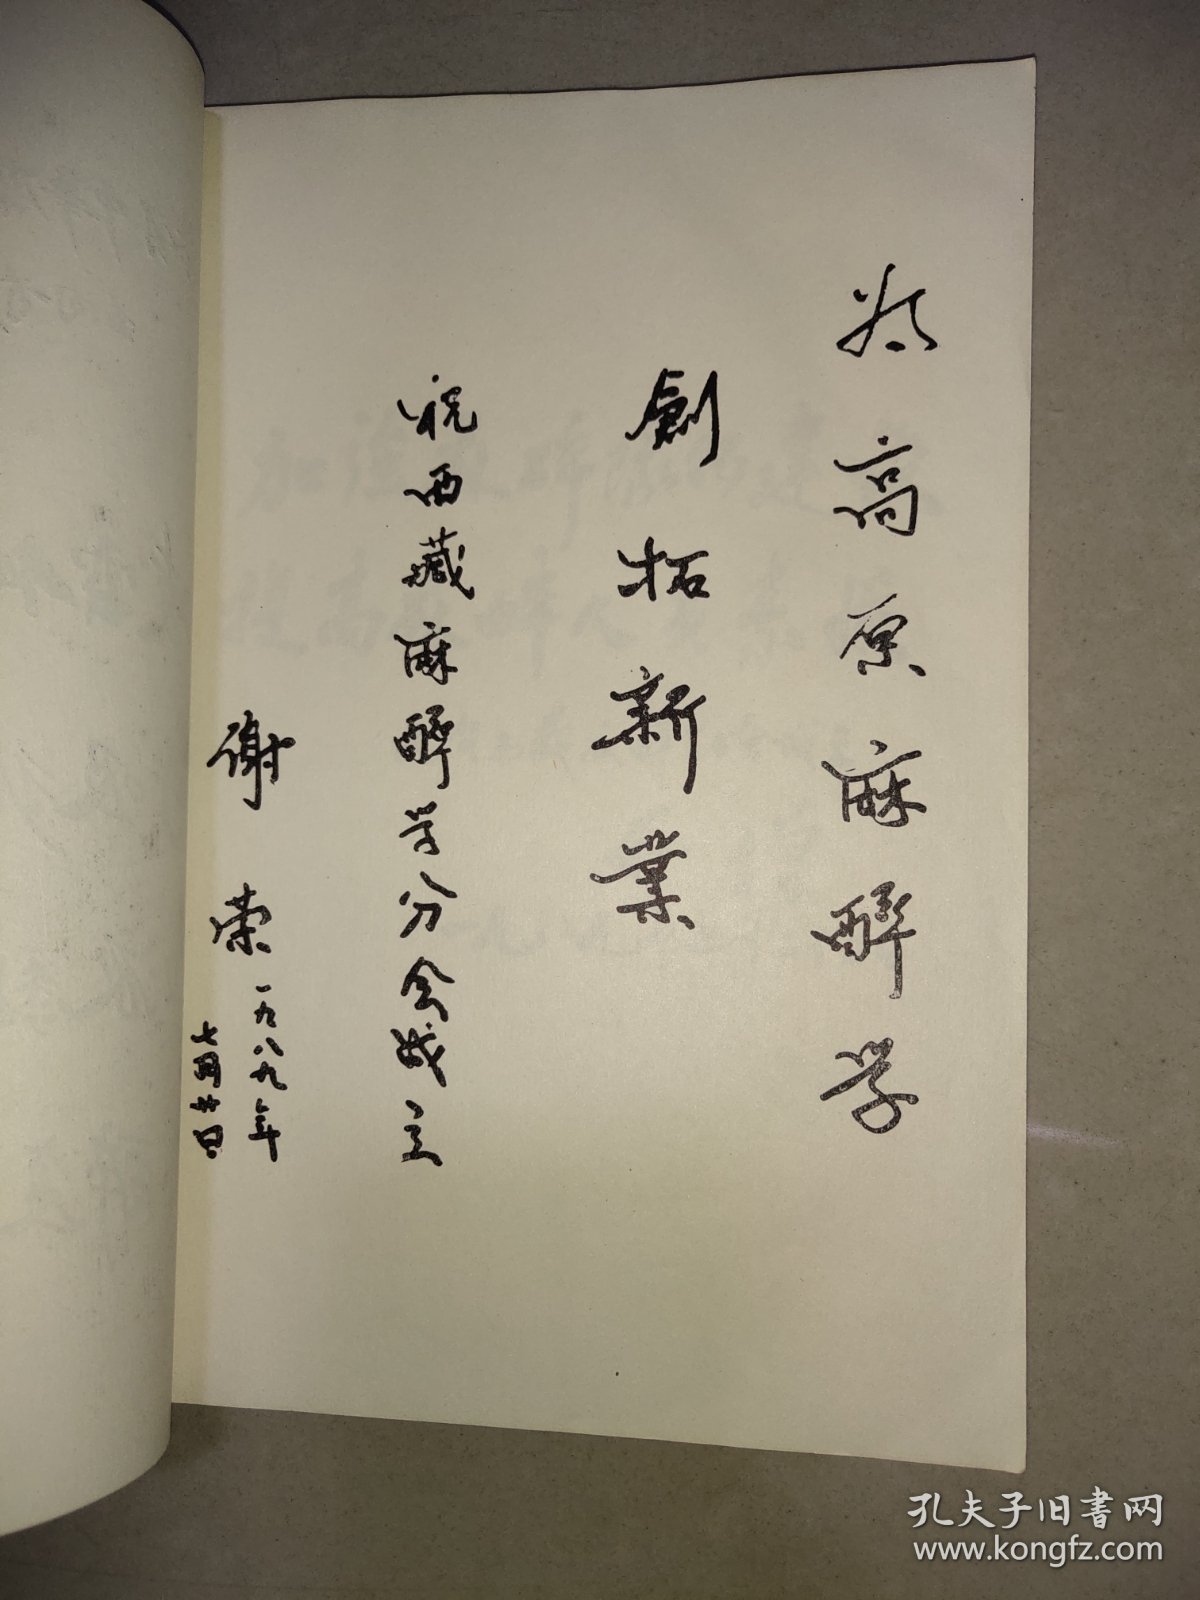 为高原麻醉学
創拓新業
祝西藏麻醉学分会成立
谢荣
一九八九年
七月廿日
孔夫子旧書网
www.kongfz.com